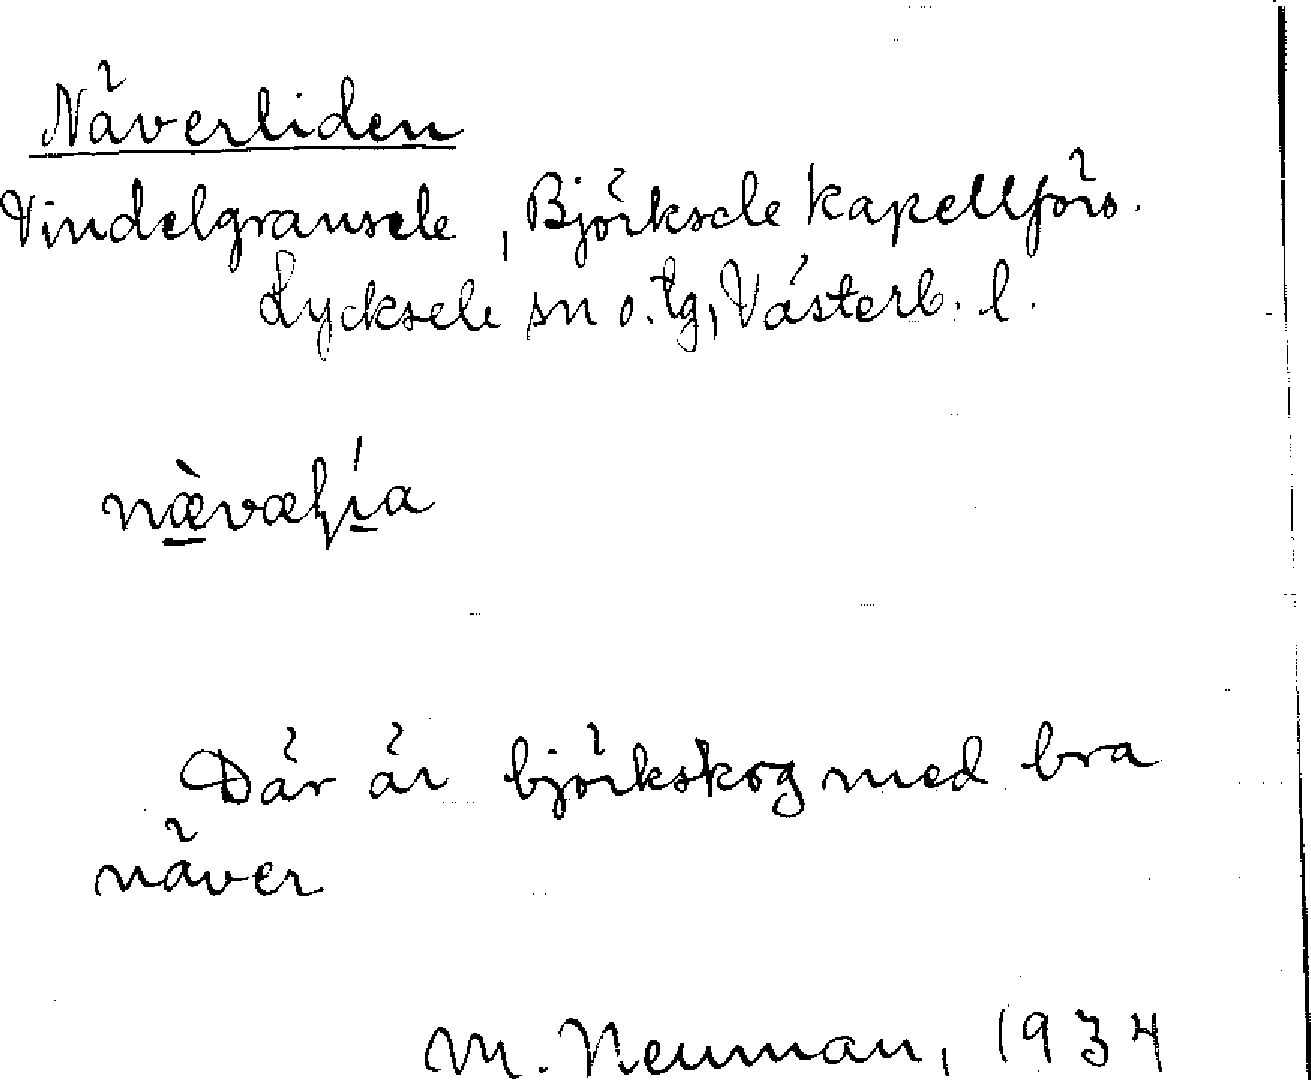 Näverliden
Vindelgransele, Björksele kapellförs.
Lycksele sn o. tg, Västerb. l.
nævæḷi̱a
Där är björkskog med bra
näver
M. Neuman, 1934